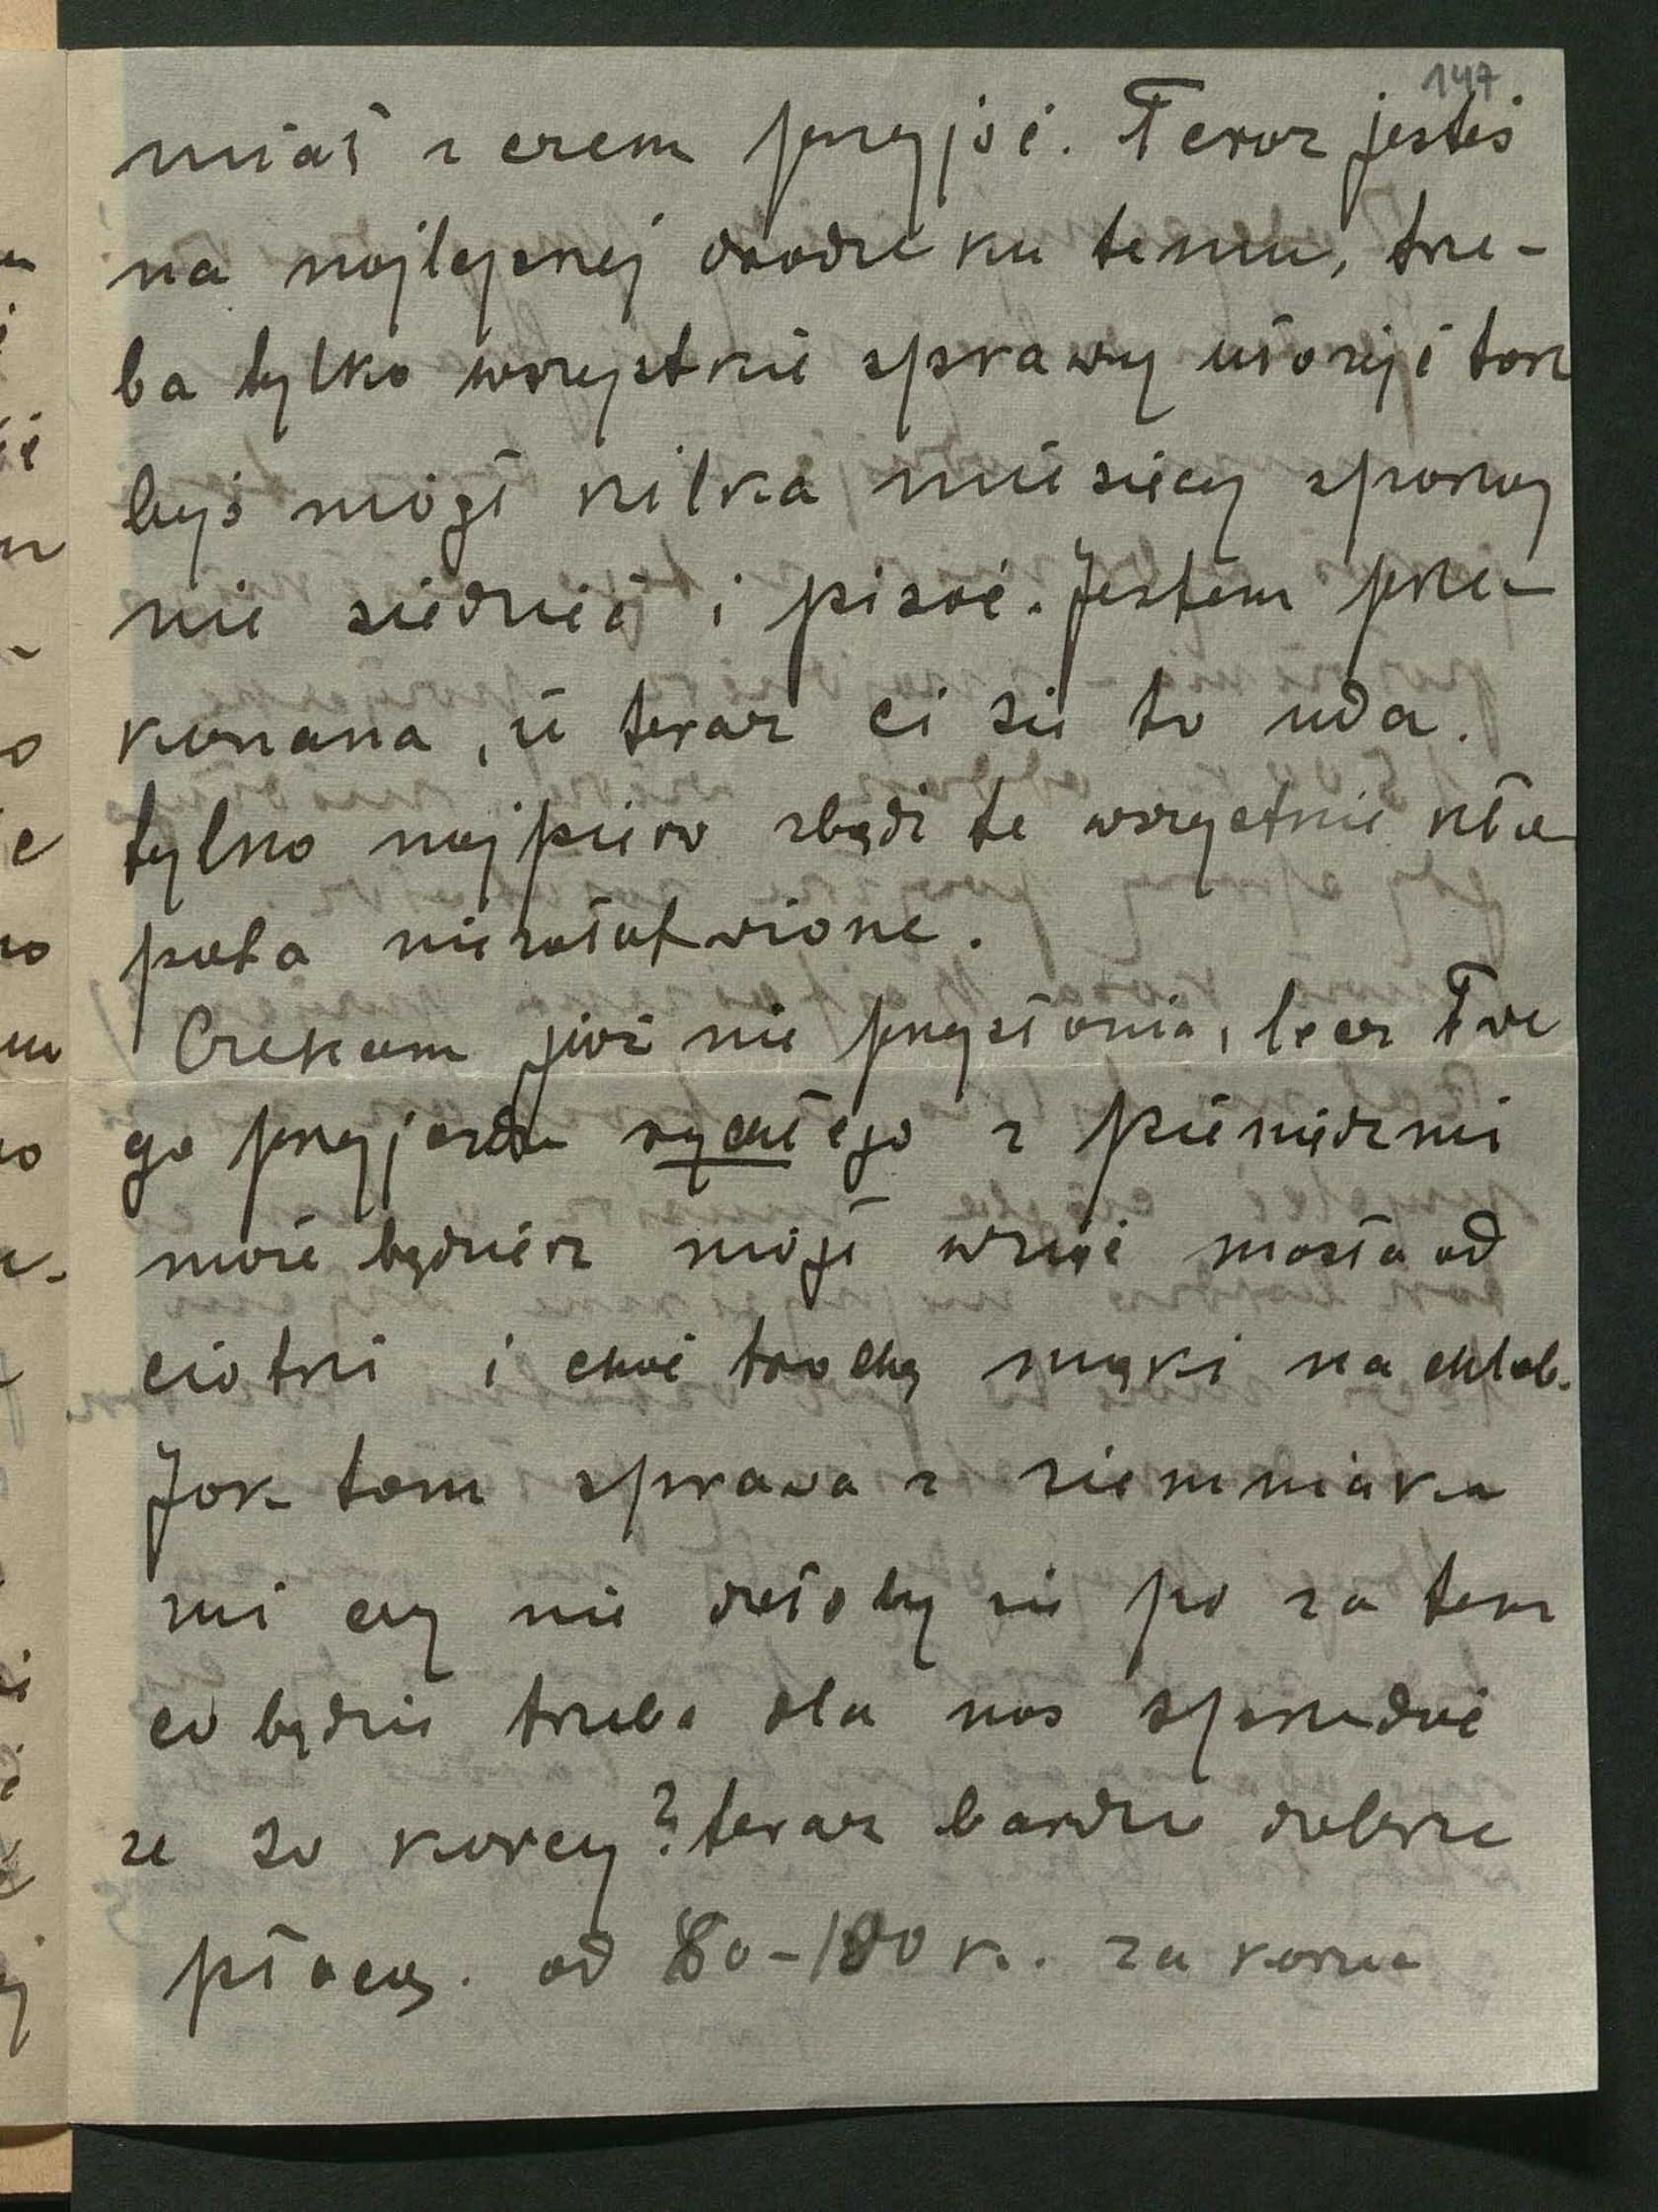 147
miał z czem przyjść. Teraz jesteś
na najlepszej drodze ku temu, trze-
ba tylko wszystkie sprawy ułożyć tak
byś mógł kilka miesięcy spokoj
nie siedzieć i pisać. Jestem prze-
konana, że teraz ci się to uda.
tylko najpierw zbądź te wszystkie kło
pota niezałatwione.
Czekam już nie przysłania, lecz Twe
go przyjazdu rychłego z pieniędzmi
może będziesz mógł wziąć masła od
ciotki i choć trochę mąki na chleb.
Jak tam sprawa z ziemniaka
mi czy nie dałoby się po za tem
co będzie trzeba dla nas sprzedać
ze 20 korcy? teraz bardzo dobrze
płacą. od 80-100 k. za korzec